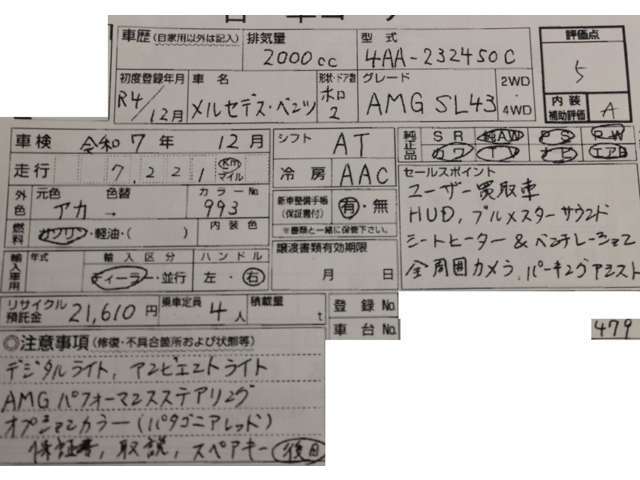 車歴 (自家用以外は記入) 排気量 型式 評価点
2000cc 4AA-232450C 5
初度登録年月 車名 形状・ドア数 グレード 2WD・4WD 内装補助評価 A
R4/12月 メルセデス・ベンツ ホロ 2 AMG SL43
車検 令和7年 12月 シフト AT 純正品 SR 純AW PS PW
走行 7,221 Km マイル 冷房 AAC カワ TV ナビ エアB
外色 元色 色替 カラーNo. 新車整備手帳 (保証書付) 有・無 セールスポイント
アカ → 993 ※書類と一緒に保管下さい。 ユーザー買取車
燃料 ガソリン・軽油・( ) 内装色 譲渡書類有効期限 HUD, ブルメスターサウンド
輸入車用 年式 輸入区分 ハンドル 月 日 シートヒーター & ベンチレーション
ディーラー・並行 左・右 全周囲カメラ, パーキングアシスト
リサイクル預託金 21,610円 乗車定員 4人 積載量 t 登録No.
車台No. 479
◎注意事項 (修復・不具合箇所および状態等)
デジタルライト, アンビエントライト
AMG パフォーマンスステアリング
オプションカラー (パタゴニアレッド)
保証書, 取説, スペアキー 後日